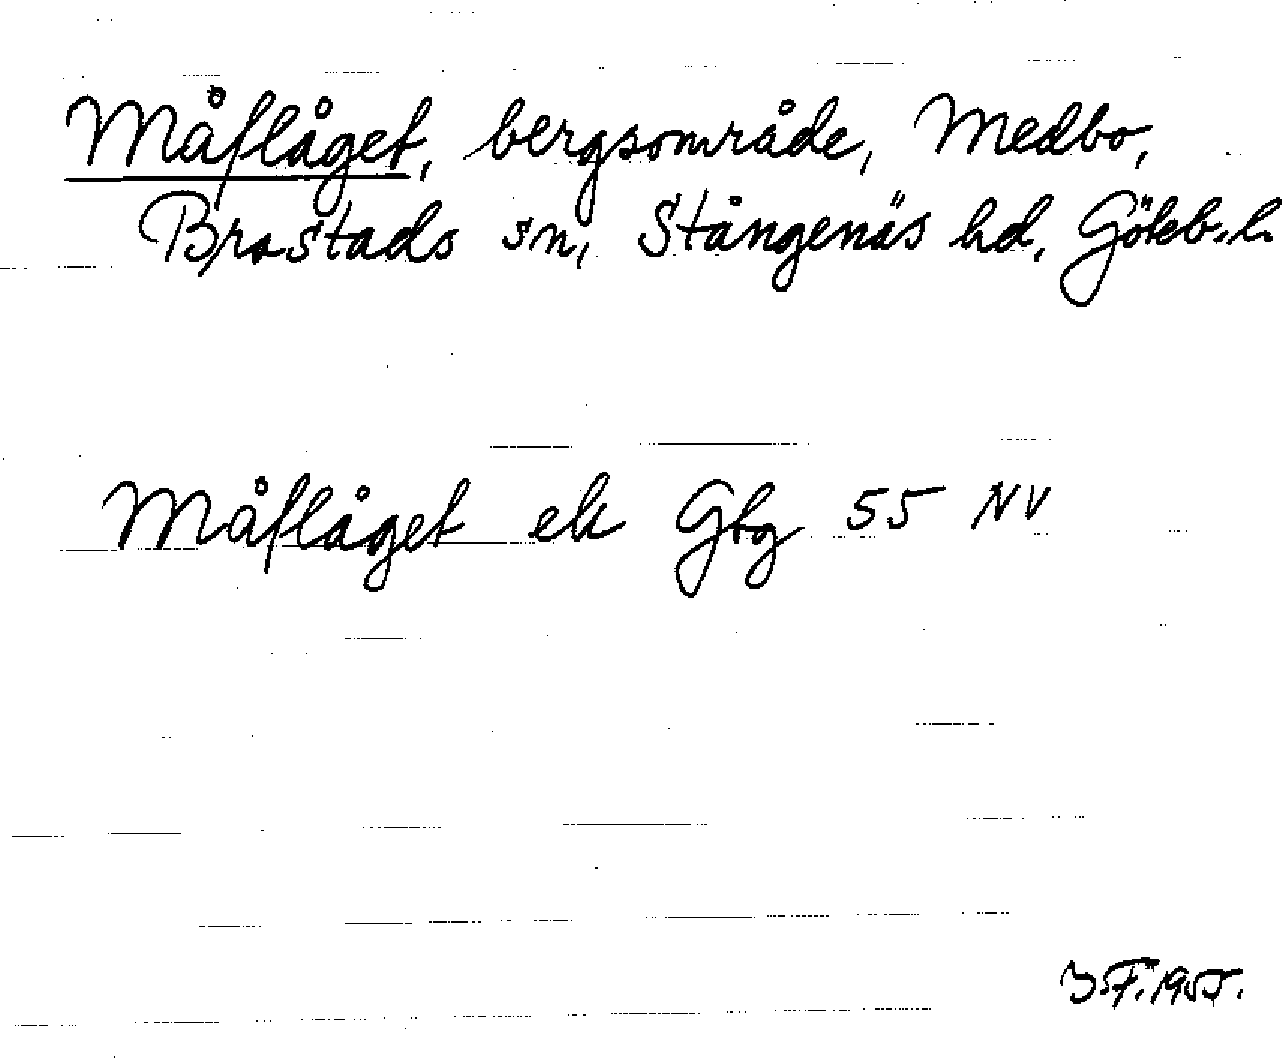 Måflåget, bergsområde, Medbo,
Brastads sn, Stångenäs hd, Göteb. l.
Måflåget ek Gbg 55 NV
1955.